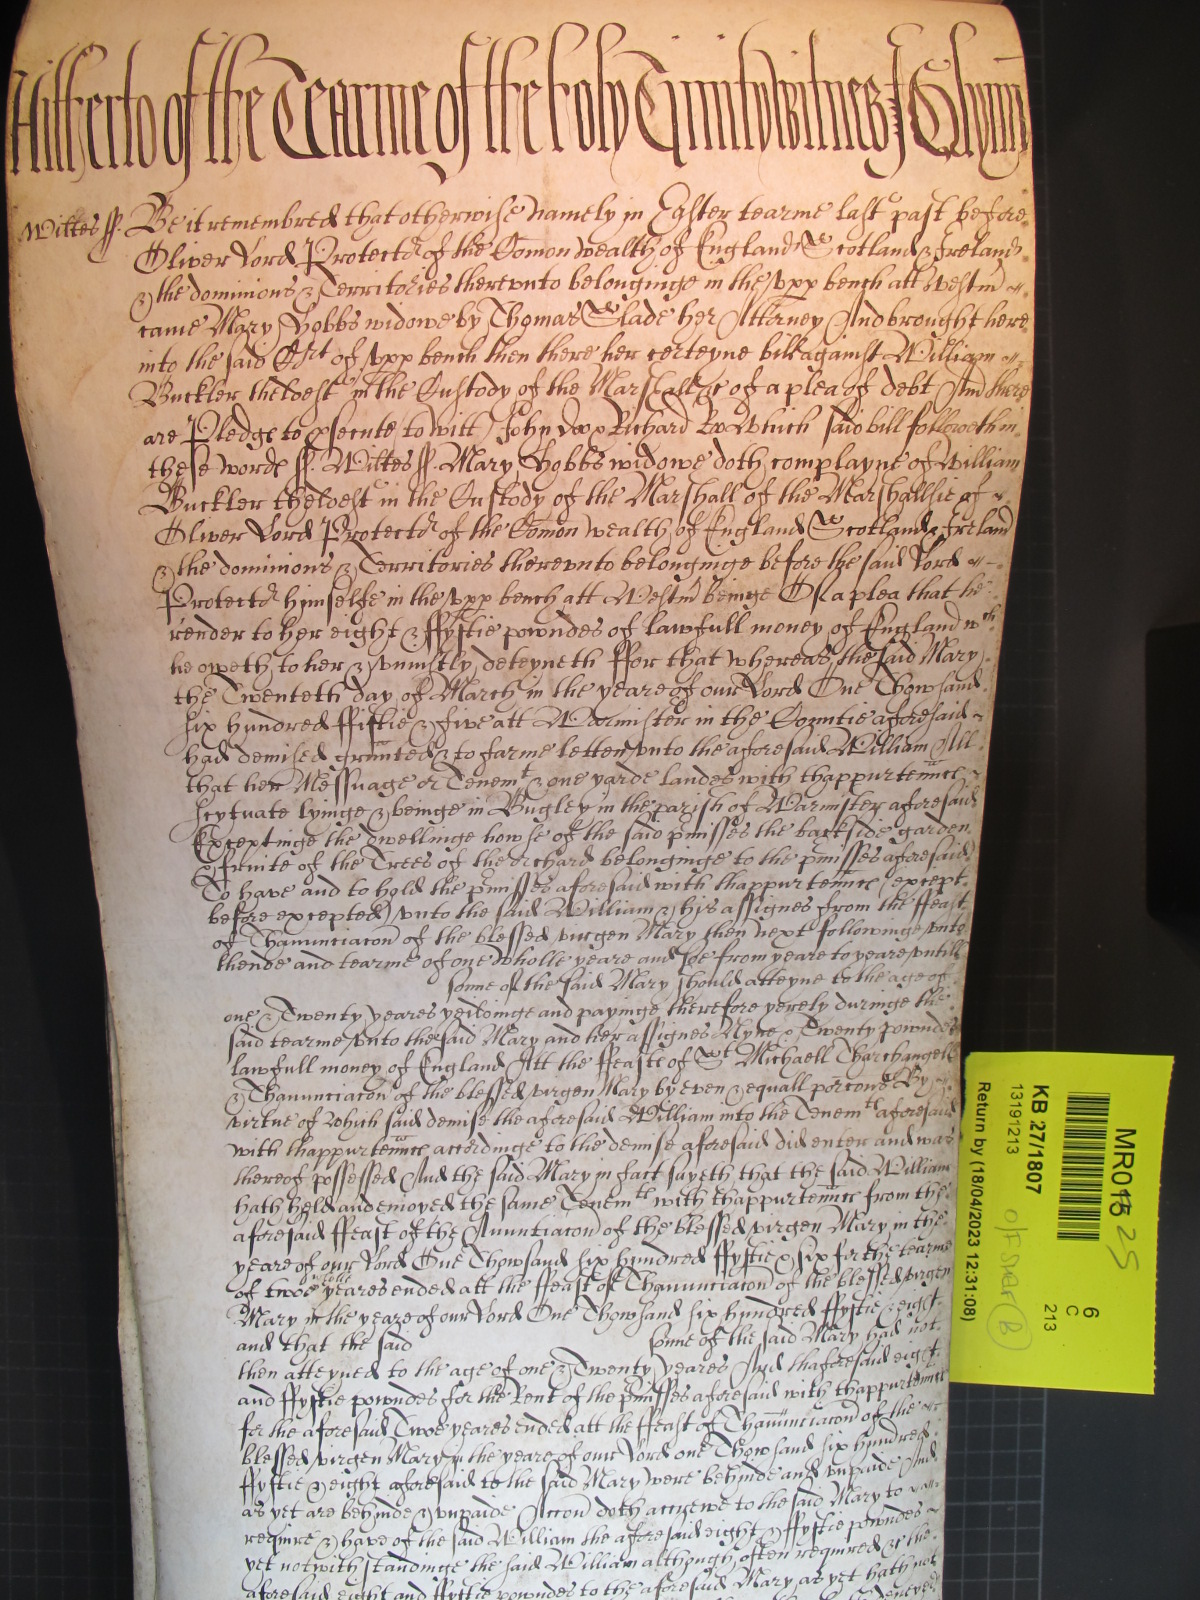 Hitherto of the Tearme of the holy Trinity Witnes J Glynn
Wiltes ss. Be it remembred that otherwise namely in Easter tearme last past before
Oliver Lord Protectr of the Comon wealth of England Scotland & Ireland
& the dominions & Territories therevnto belonginge in the vpp bench att Westmr
came Mary Hobbs widowe by Thomas Slade her Atturney And brought here
into the said Crt of vpp bench then there her certeyne bill against William
Buckler theldest in the Custody of the Marshall &c of a plea of debt And there
are Pledge to psecute to witt John Doo & Richard Roo Which said bill followeth in
these words ss. Wiltes ss. Mary Hobbs widowe doth complayne of William
Buckler theldest in the Custody of the Marshall of the Marshallsie of
Oliver Lord Protectr of the Comon wealth of England Scotland & Ireland
& the dominions & Territories therevnto belonginge before the said Lord
Protectr himselfe in the vpp bench att Westmr beinge Of a plea that he
render to her eight & ffyftie powndes of lawfull money of England wch
he oweth to her & vniustly deteyneth ffor that whereas the said Mary
the Twenteth day of March in the yeare of our Lord One Thowsand
six hundred ffiftie & five att Warmister in the Countie aforesaid
had demised granted & to farme letten vnto the aforesaid William All
that her Messuage or Tenemt & one yarde landes with thappurtennce
scytuate lyinge & beinge in Bugley in the parish of Warmister aforesaid
Exceptinge the dwellinge howse of the said pmisses the backside garden
& fruite of the Trees of the orchard belonginge to the pmisses aforesaid
To have and to hold the pmisses aforesaid with thappurtennce (except
before excepted) vnto the said William & his assignes from the ffeast
of Thanunciacon of the blessed virgen Mary then next followinge vnto
thende and tearme of one wholle yeare and soe from yeare to yeare vntill
sonne of the said Mary should atteyne to the age of
one & Twenty yeares yeildinge and payinge therefore yerely duringe the
said tearme vnto the said Mary and her assignes Nyne & Twenty powndes
lawfull money of England Att the ffeasts of St Michaell Tharchangell
& Thanunciacon of the blessed virgen Mary by even & equall porcons By
virtue of which said demise the aforesaid William into the Tenemts aforesaid
with thappurtennce accordinge to the demise aforesaid did enter and was
thereof possessed And the said Mary in fact sayeth that the said William
hath held and enioyed the same Tenemts with thappurtennce from the
aforesaid ffeast of the Anuntiacon of the blessed virgen Mary in the
yeare of our Lord One Thowsand six hundred ffyftie & six for the tearme
of twoe wholle yeares ended att the ffeast of Thanunciacon of the blessed virgen
Mary in the yeare of our Lord One Thowsand six hundred ffyftie & eight
and that the said sonne of the said Mary had not
then atteyned to the age of one & Twenty yeares And thaforesaid eight
and ffyftie powndes for the Rent of the pmisses aforesaid with thappurtennce
for the aforesaid Twoe yeares ended att the ffeast of Thanunciacon of the
blessed virgen Mary in the yeare of our Lord one Thowsand six hundred
ffyftie & eight aforesaid to the said Mary were behinde and vnpaide And
as yet are behinde & vnpaide Accon doth accrewe to the said Mary to
require & have of the said William the aforesaid eight & ffyftie powndes
yet notwithstandinge the said William although often required &c the
aforesaid eight and ffyftie powndes to the aforesaid Mary as yet hath not
MR018 25
6
C
213
KB 27/1807
13191213
O/F Shelf (B)
Return by (18/04/2023 12:31:08)